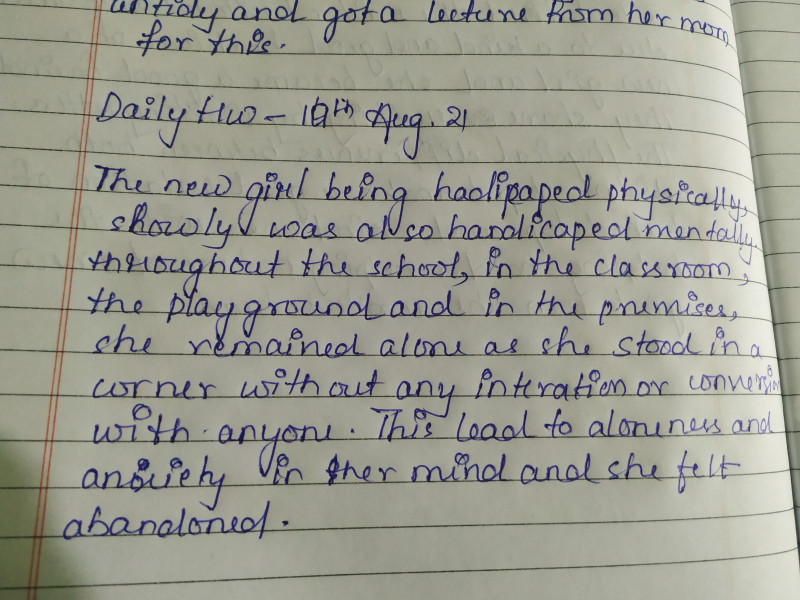 untidy and got a lecture from her mom
for this.
Daily HW - 10th Aug. 21
The new girl being hadipaped physically,
showly was also handicaped mentally.
throughout the school, in the classroom,
the playground and in the premises,
she remained alone as she stood in a
corner without any interation or conversin
with anyone. This lead to aloneness and
anxiety in her mind and she felt
abandoned.